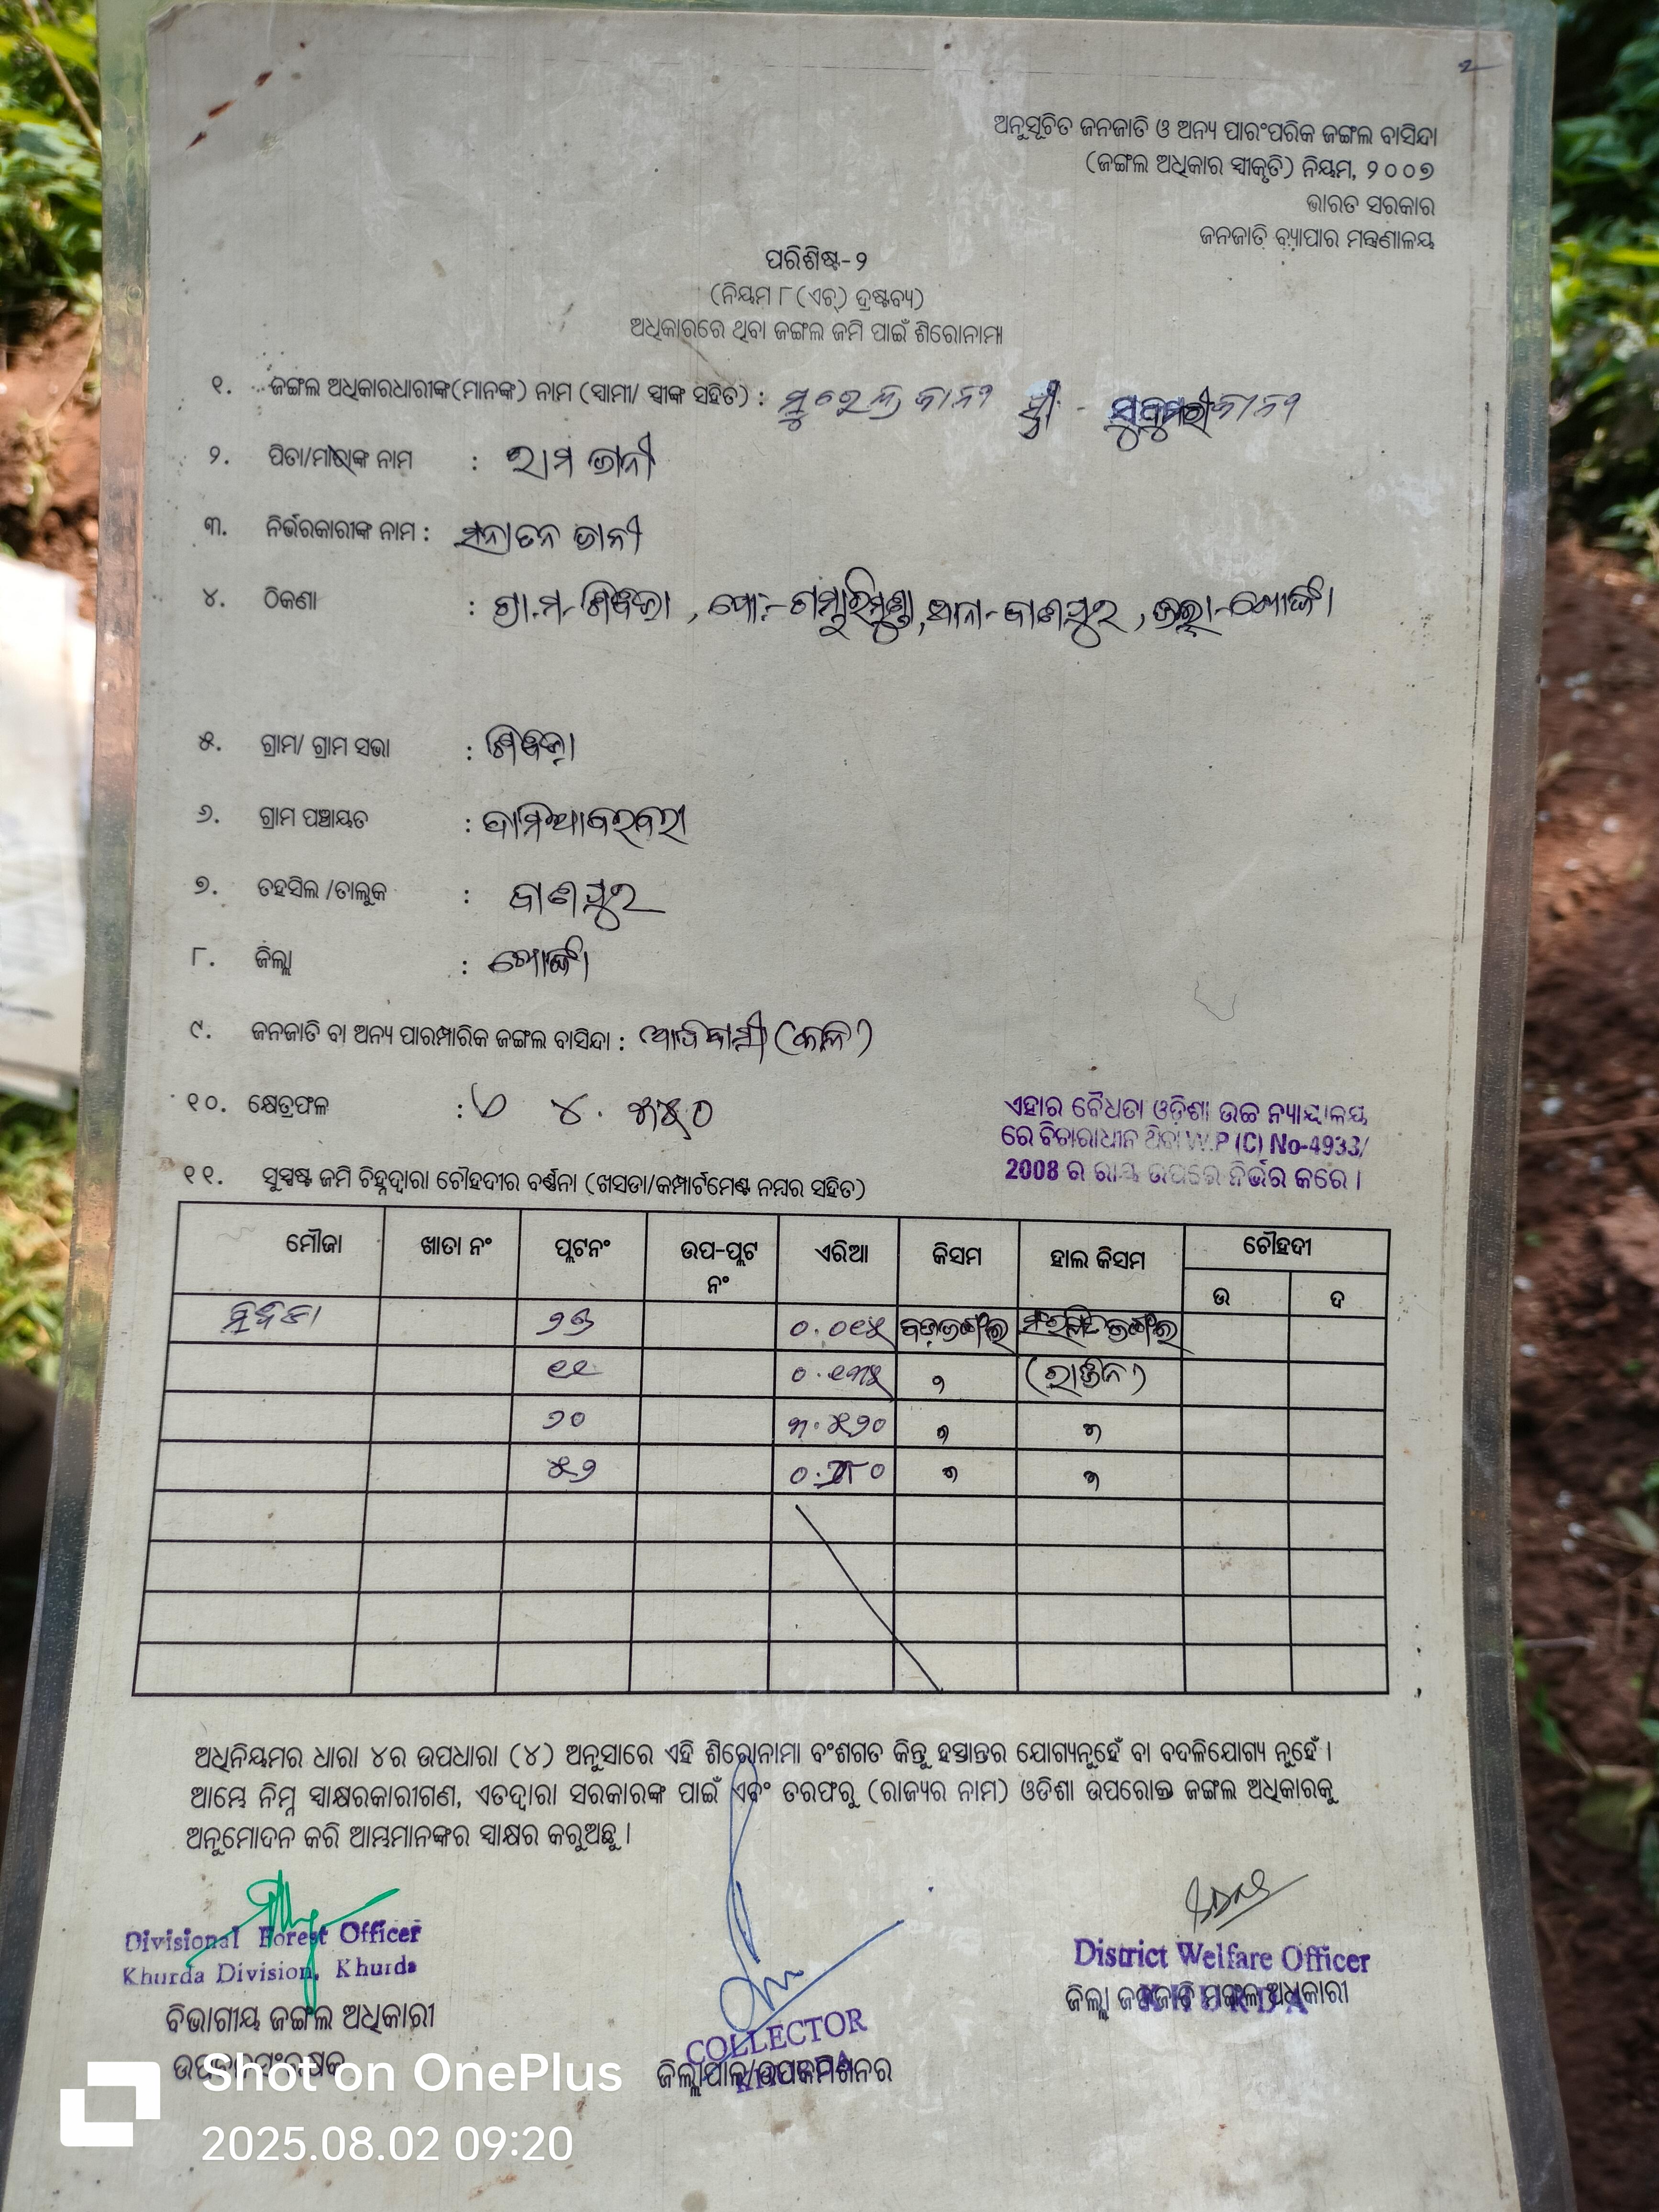 ୨
ଅନୁସୂଚିତ ଜନଜାତି ଓ ଅନ୍ୟ ପାରଂପରିକ ଜଙ୍ଗଲ ବାସିନ୍ଦା
(ଜଙ୍ଗଲ ଅଧିକାର ସ୍ୱୀକୃତି) ନିୟମ, ୨୦୦୭
ଭାରତ ସରକାର
ଜନଜାତି ବ୍ୟାପାର ମନ୍ତ୍ରଣାଳୟ
ପରିଶିଷ୍ଟ-୨
(ନିୟମ ୮(ଏଚ୍) ଦ୍ରଷ୍ଟବ୍ୟ)
ଅଧିକାରରେ ଥିବା ଜଙ୍ଗଲ ଜମି ପାଇଁ ଶିରୋନାମା
୧. ଜଙ୍ଗଲ ଅଧିକାରଧାରୀଙ୍କ(ମାନଙ୍କ) ନାମ (ସ୍ୱାମୀ/ ସ୍ତ୍ରୀଙ୍କ ସହିତ) : ସ୍ତ୍ରୀ -
୨. ପିତା/ମାତାଙ୍କ ନାମ : ରାମ ଜାନୀ
୩. ନିର୍ଭରକାରୀଙ୍କ ନାମ : ସନାତନ ଜାନୀ
୪. ଠିକଣା : ଗ୍ରା.ମ- , ପୋ:- , ଥାନା- ବାଣପୁର , ଜିଲ୍ଲା-ଖୋର୍ଦ୍ଧା
୫. ଗ୍ରାମ/ ଗ୍ରାମ ସଭା :
୬. ଗ୍ରାମ ପଞ୍ଚାୟତ :
୭. ତହସିଲ /ତାଲୁକ : ବାଣପୁର
୮. ଜିଲ୍ଲା : ଖୋର୍ଦ୍ଧା
୯. ଜନଜାତି ବା ଅନ୍ୟ ପାରମ୍ପାରିକ ଜଙ୍ଗଲ ବାସିନ୍ଦା : ଆଦିବାସୀ
୧୦. କ୍ଷେତ୍ରଫଳ :
ଏହାର ବୈଧତା ଓଡ଼ିଶା ଉଚ୍ଚ ନ୍ୟାୟାଳୟ
ରେ ବିଚାରାଧୀନ ଥିବା W.P (C) No-4933/
2008 ର ରାୟ ଉପରେ ନିର୍ଭର କରେ ।
୧୧. ସୁସ୍ପଷ୍ଟ ଜମି ଚିହ୍ନଦ୍ୱାରା ଚୌହଦୀର ବର୍ଣ୍ଣନା (ଖସଡା/କମ୍ପାର୍ଟମେଣ୍ଟ ନମ୍ବର ସହିତ)
ମୌଜା ଖାତା ନଂ ପ୍ଲଟନଂ ଉପ-ପ୍ଲଟ ନଂ ଏରିଆ କିସମ ହାଲ କିସମ ଚୌହଦୀ
ଉ ଦ
୦.୦୧୫
୧୧ ୦.୧୩୫
୭୦ ୩.୫୨୦
୫୬
ଅଧିନିୟମର ଧାରା ୪ର ଉପଧାରା (୪) ଅନୁସାରେ ଏହି ଶିରୋନାମା ବଂଶଗତ କିନ୍ତୁ ହସ୍ତାନ୍ତର ଯୋଗ୍ୟନୁହେଁ ବା ବଦଳିଯୋଗ୍ୟ ନୁହେଁ ।
ଆମ୍ଭେ ନିମ୍ନ ସ୍ୱାକ୍ଷରକାରୀଗଣ, ଏତଦ୍ୱାରା ସରକାରଙ୍କ ପାଇଁ ଏବଂ ତରଫରୁ (ରାଜ୍ୟର ନାମ) ଓଡିଶା ଉପରୋକ୍ତ ଜଙ୍ଗଲ ଅଧିକାରକୁ
ଅନୁମୋଦନ କରି ଆମ୍ଭମାନଙ୍କର ସ୍ୱାକ୍ଷର କରୁଅଛୁ ।
Divisional Forest Officer
Khurda Division, Khurda
ବିଭାଗୀୟ ଜଙ୍ଗଲ ଅଧିକାରୀ
COLLECTOR
ଜିଲ୍ଲାପାଳ/ଉପକମିଶନର
District Welfare Officer
ଜିଲ୍ଲା ଜନଜାତି ମଙ୍ଗଳ ଅଧିକାରୀ
Shot on OnePlus
2025.08.02 09:20